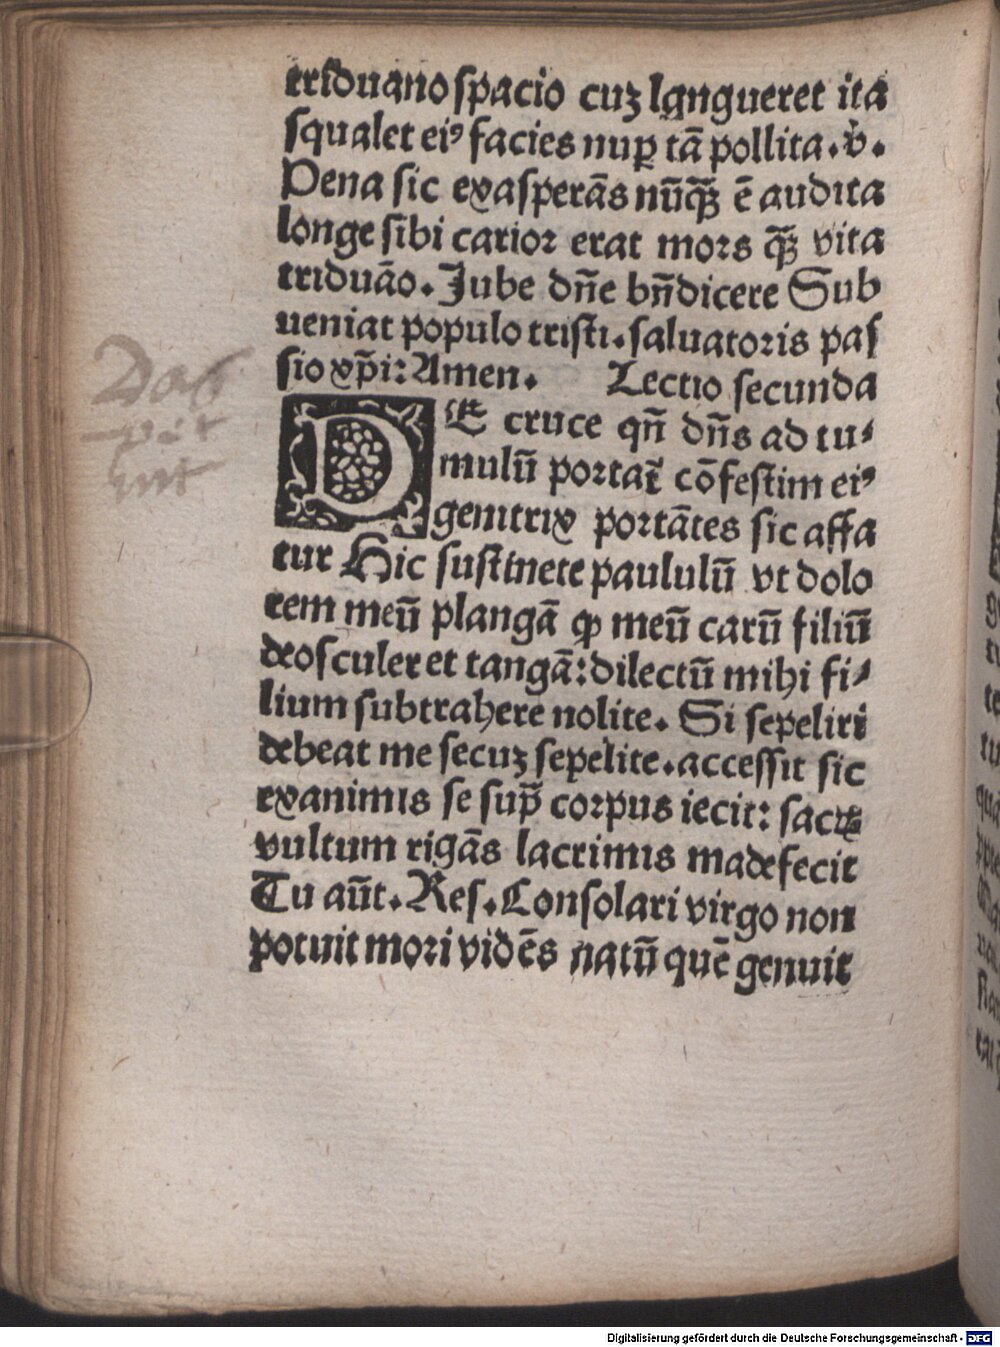 triduano spacio cuꝫ langueret ita
squalet eiꝰ facies nuꝑ tā pollita. v̇.
Pena sic exasperās nūq̄ꝫ ē audita
longe sibi carior erat mors q̄ꝫ vita
triduāo. Jube dn̄e bn̄dicere Sub
ueniat populo tristi. saluatoris pas
sio xp̄i: Amen. Lectio secunda
DE cruce qn̄ dn̄s ad tu⸗
mulū portat̄ cōfestim eiꝰ
genitrix portātes sic affa
tur Hic sustinete paululū vt dolo
rem meū plangā ꝙ meū carū filiū
deosculer et tangā: dilectū mihi fi⸗
lium subtrahere nolite. Si sepeliri
debeat me secuꝫ sepelite. accessit sic
exanimis se sup̄ corpus iecit: sacꝝ
vultum rigās lacrimis madefecit
Tu aūt. Res. Consolari virgo non
potuit mori vidēs natū quē genuit
Digitalisierung gefördert durch die Deutsche Forschungsgemeinschaft - DFG